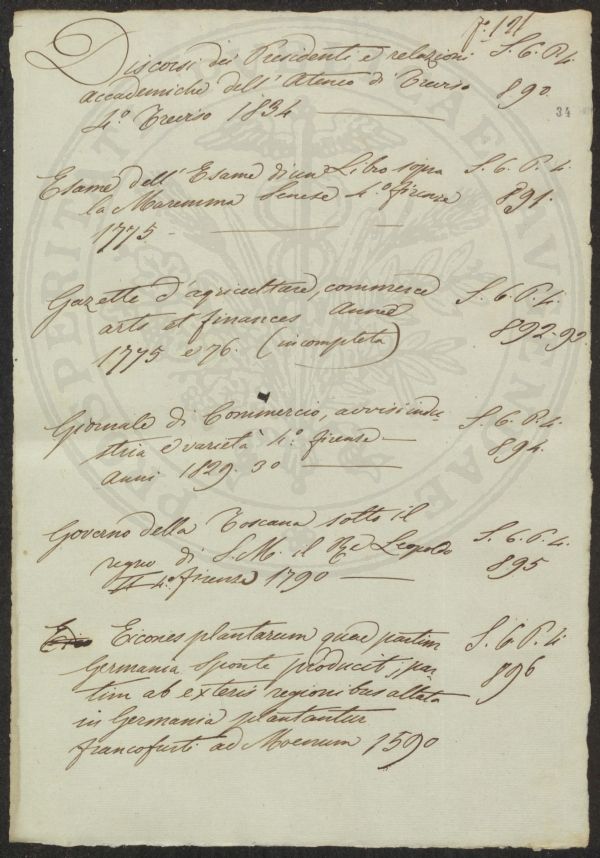 f.º 121
34
Discorsi dei Presidenti e relazioni S. 6. P. 4.
accademiche dell' Ateneo di Treviso 890.
4.º Treviso 1834
Esame dell' Esame di un Libro sopra S. 6. P. 4.
la Maremma Senese 4.º firenze 891.
1775.
Gazette d'agriculture, commerce S. 6. P. 4.
arts et finances Année 892-93.
1775 e 76. (incompleta)
Giornale di Commercio, avvisi indu- S. 6. P. 4.
stria e varietà 4.º firenze 894.
anni 1829. 30
Governo della Toscana sotto il S. 6. P. 4.
regno di S. M. il Re Leopoldo 895
II 4.º firenze 1790
Eicones plantarum quae partim S. 6 P. 4.
Germania Sponte producit, par- 896
tim ab exteris regionibus allata
in Germania plantantur
francofurti ad Moenum 1590